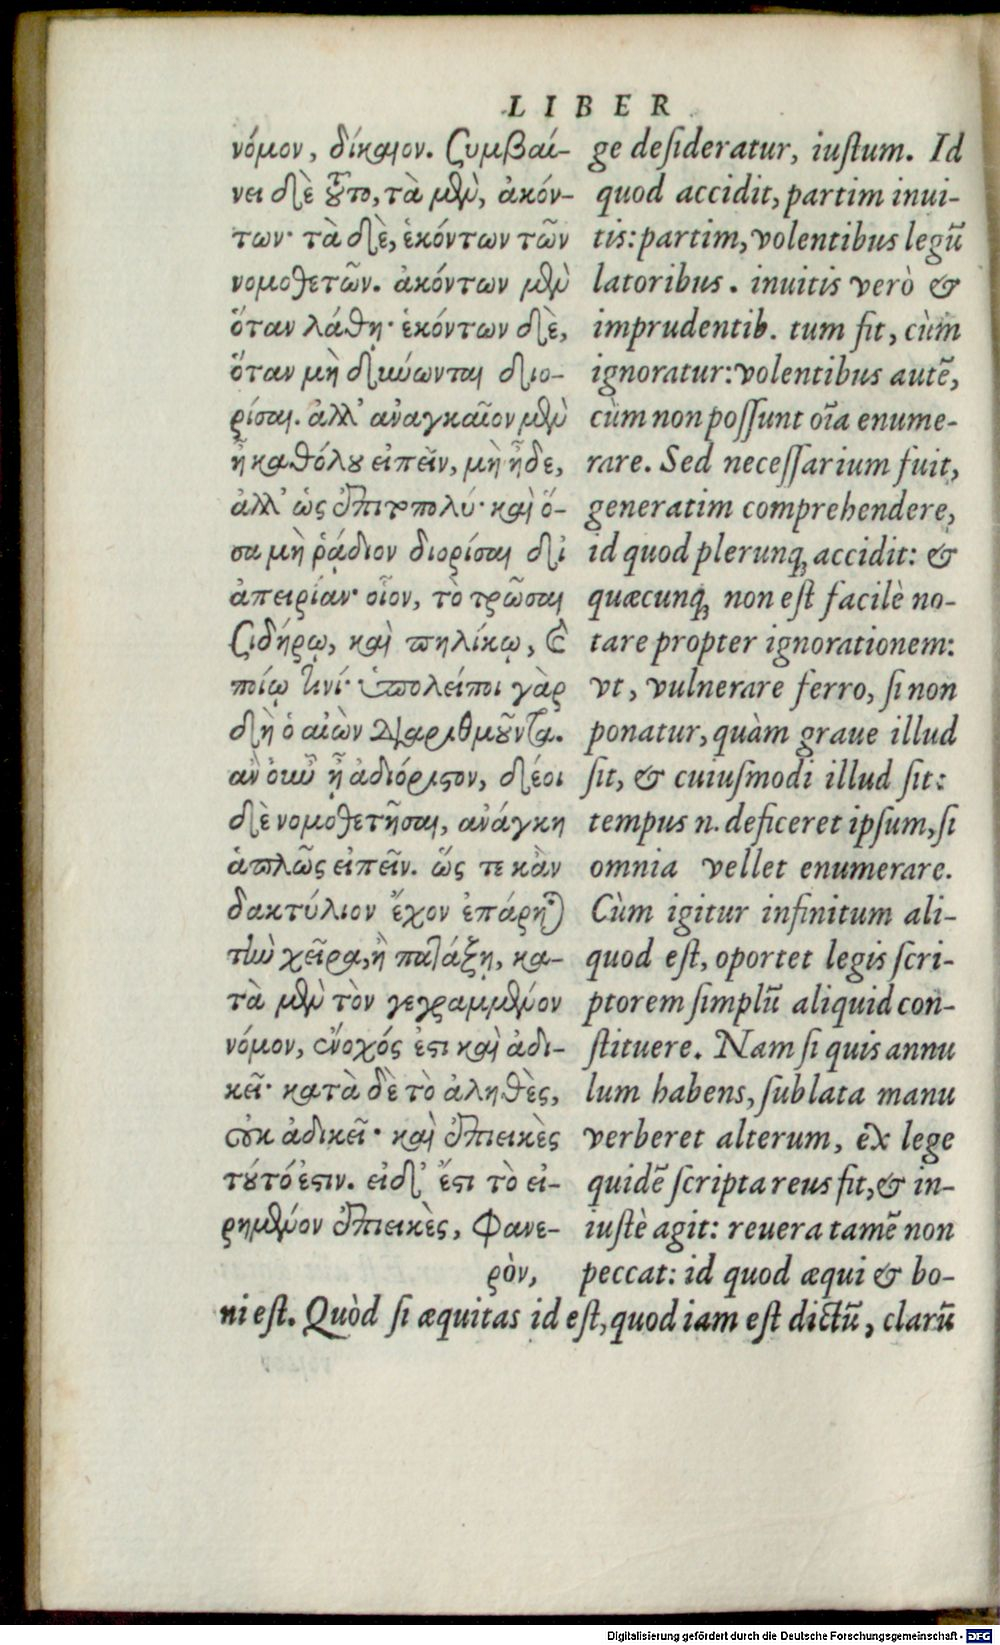 LIBER
νόμον, δίκαιον. Συμβαί-
νει δὲ τοῦτο, τὰ μὲν, ἀκόν-
των· τὰ δὲ, ἑκόντων τῶν
νομοθετῶν. ἀκόντων μὲν
ὅταν λάθῃ· ἑκόντων δὲ,
ὅταν μὴ δύνωνται διο-
ρίσαι. ἀλλ' ἀναγκαῖον μὲν
ᾖ καθόλου εἰπεῖν, μὴ ᾖ δε,
ἀλλ' ὡς ἐπιτοπολύ· καὶ ὅ-
σα μὴ ῥᾴδιον διορίσαι δι'
ἀπειρίαν· οἷον, τὸ τρῶσαι
Σιδήρῳ, καὶ πηλίκῳ, καὶ
ποίῳ τινί· ὑπολείποι γὰρ
δὴ ὁ αἰὼν διαριθμοῦντα.
ἂν οὖν ᾖ ἀδιόριστον, δέοι
δὲ νομοθετῆσαι, ἀνάγκη
ἁπλῶς εἰπεῖν. ὥς τε κἂν
δακτύλιον ἔχον ἐπάρηται
τὴν χεῖρα, ἢ πατάξῃ, κα-
τὰ μὲν τὸν γεγραμμένον
νόμον, ἔνοχός ἐστι καὶ ἀδι-
κεῖ· κατὰ δὲ τὸ ἀληθὲς,
οὐκ ἀδικεῖ· καὶ ἐπιεικὲς
τοῦτό ἐστιν. εἰ δ' ἔστι τὸ εἰ-
ρημένον ἐπιεικὲς, φανε-
ρὸν,
ge desideratur, iustum. Id
quod accidit, partim inui-
tis: partim, volentibus legū
latoribus. inuitis verò &
imprudentib. tum fit, cùm
ignoratur: volentibus autē,
cùm non possunt oīa enume-
rare. Sed necessarium fuit,
generatim comprehendere,
id quod plerunq; accidit: &
quæcunq; non est facilè no-
tare propter ignorationem:
vt, vulnerare ferro, si non
ponatur, quàm graue illud
sit, & cuiusmodi illud sit:
tempus n. deficeret ipsum, si
omnia vellet enumerare.
Cùm igitur infinitum ali-
quod est, oportet legis scri-
ptorem simplū aliquid con-
stituere. Nam si quis annu
lum habens, sublata manu
verberet alterum, ex lege
quidē scripta reus fit, & in-
iustè agit: reuera tamē non
peccat: id quod æqui & bo-
ni est. Quòd si æquitas id est, quod iam est dictū, clarū
Digitalisierung gefördert durch die Deutsche Forschungsgemeinschaft - DFG